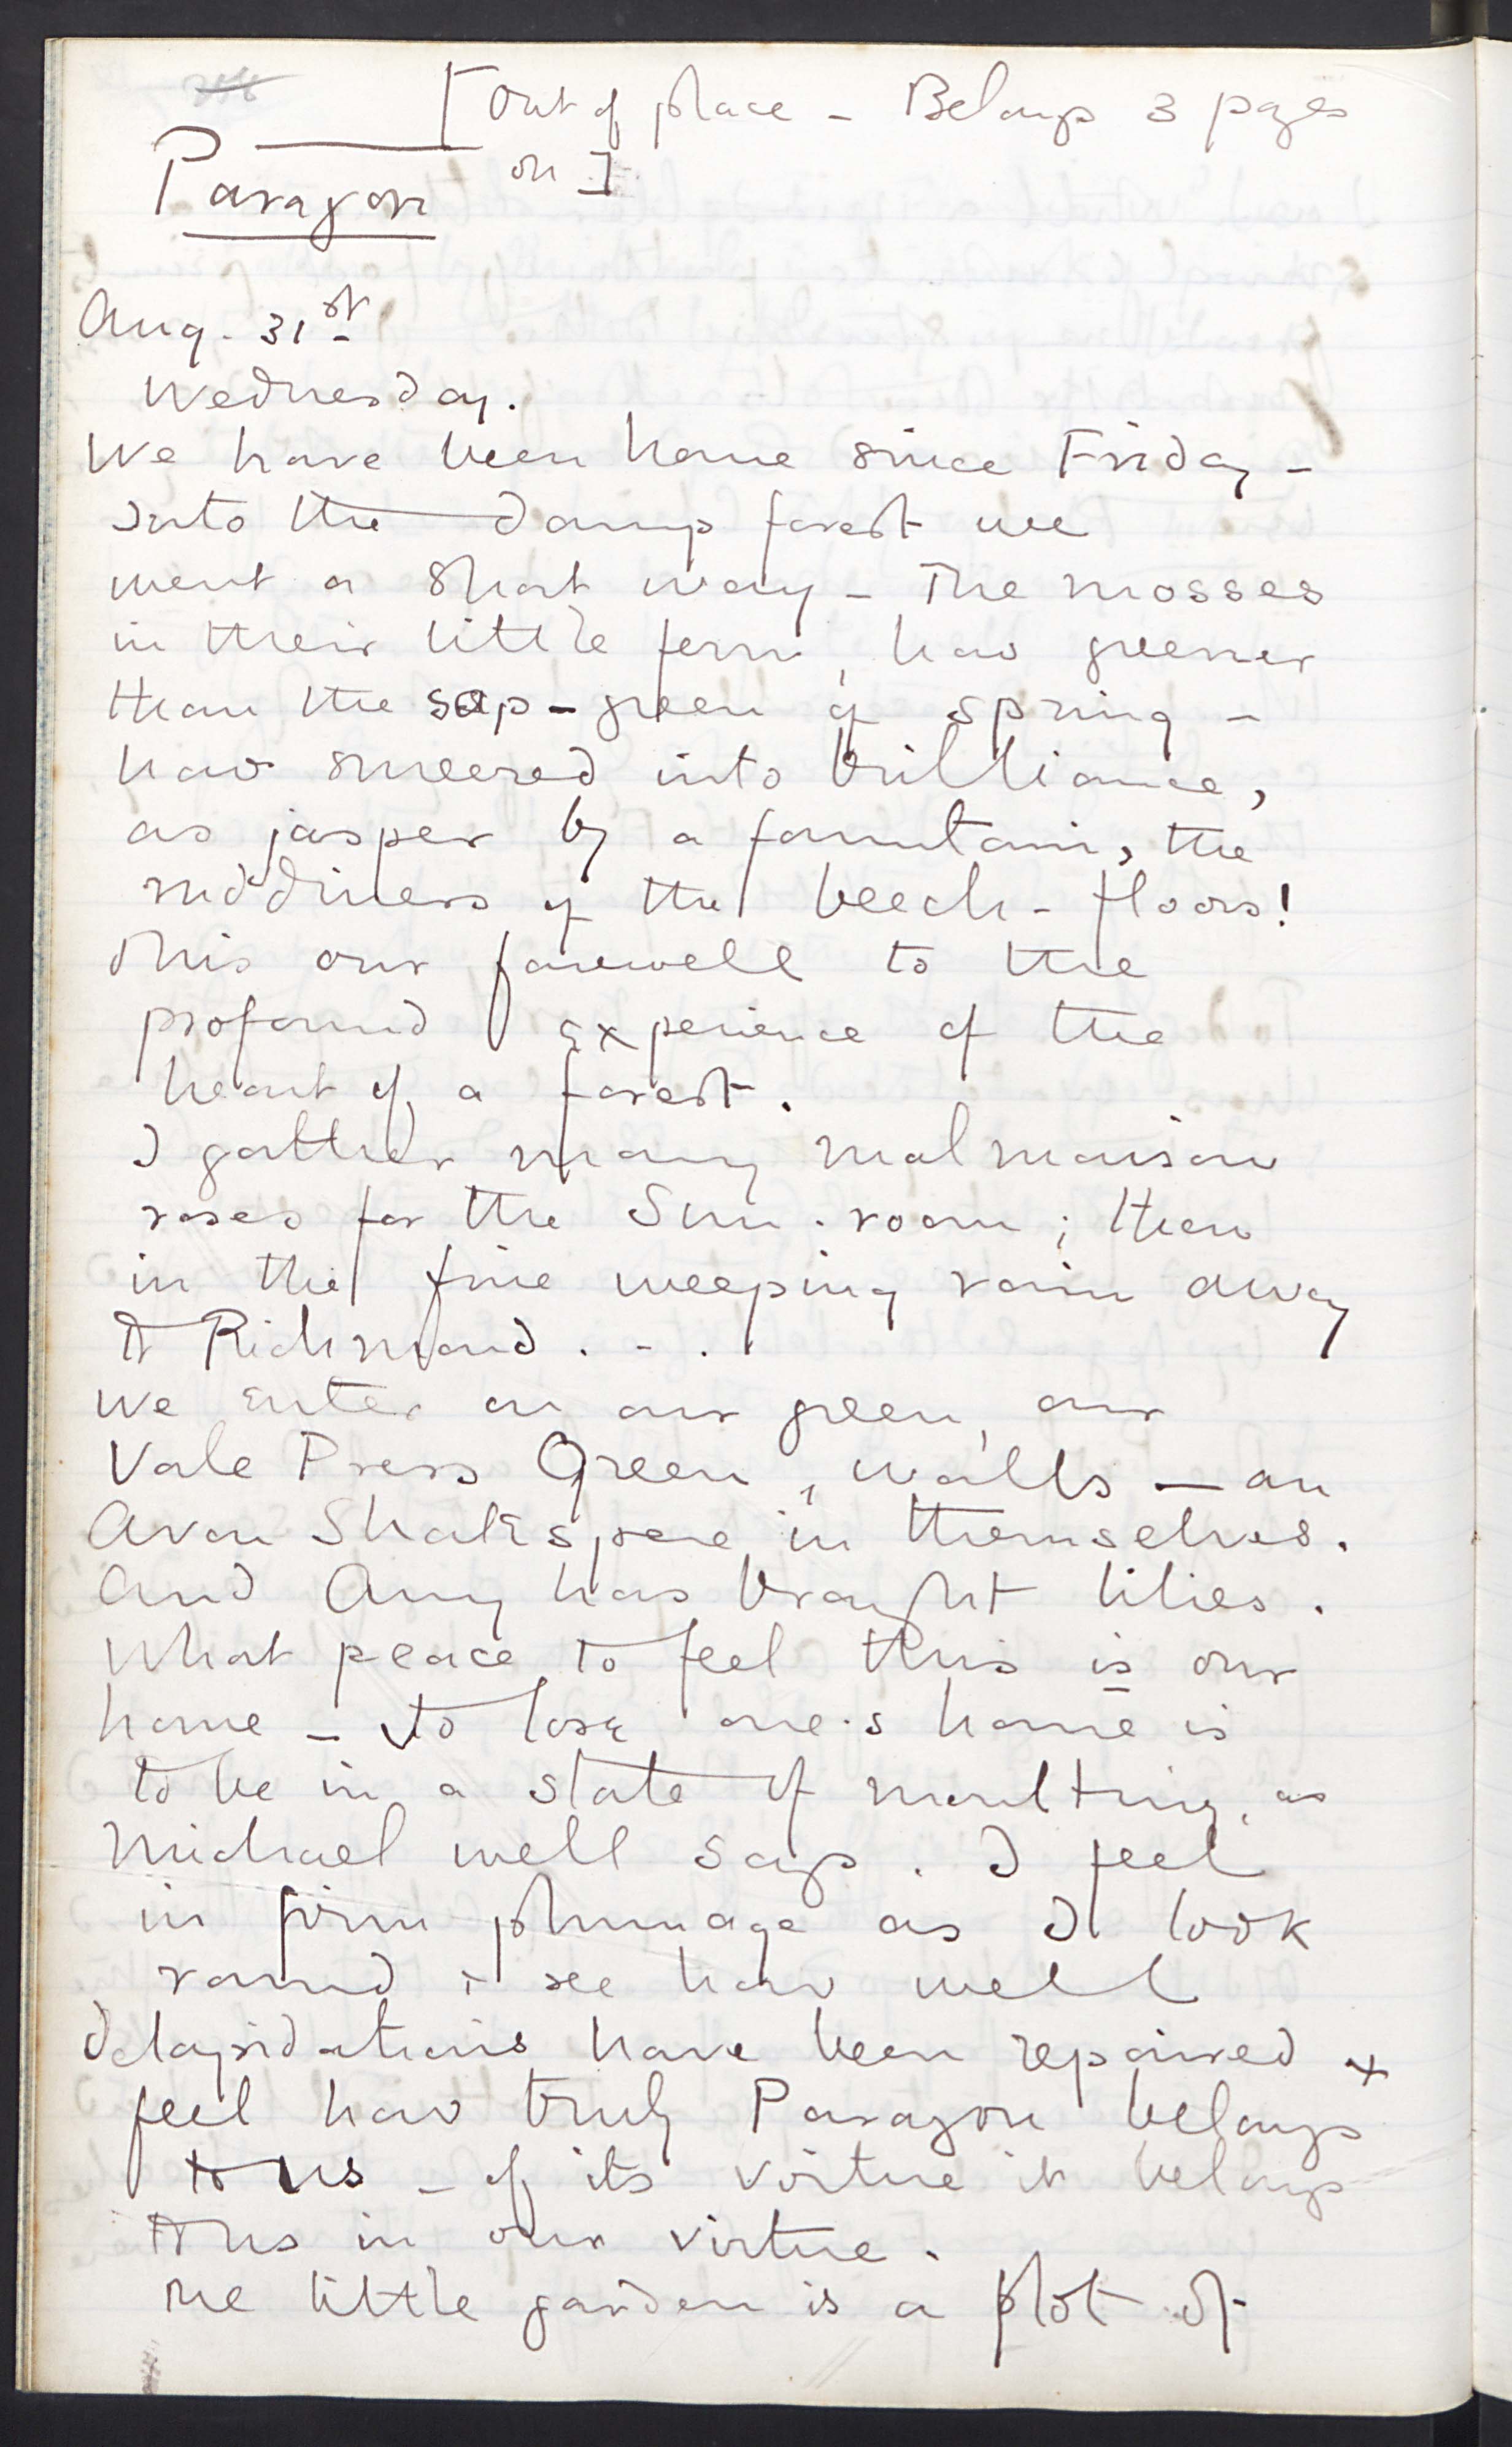 [Out of place – Belongs 3 pages
on]
Paragon
Aug. 31st
Wednesday.
We have been home since Friday –
Into the damp forest we
went a short way – The mosses
in their little ferns, how greener
than the sap-green of spring –
how smeered into brilliance,
as jasper by a fountain, the
ruddiness of the beech-floors!
This our farewell to the
profound experience of the
heart of a forest.
I gather many malmaison
roses for the Sun-room; then
in the fine weeping rain away
to Richmond . . .
We enter on our green, our
Vale Press Green, walls — an
Avon Shakspere in themselves.
And Amy has brought lilies.
What peace to feel this is our
home – to lose one's home is
to be in a state of moulting, as
Michael well says. I feel
in firm plumage as I look
round & see how well
delapidations have been repaired &
feel how truly Paragon belongs
to us – of its virtue it belongs
to us in our virtue.
The little garden is a plot of